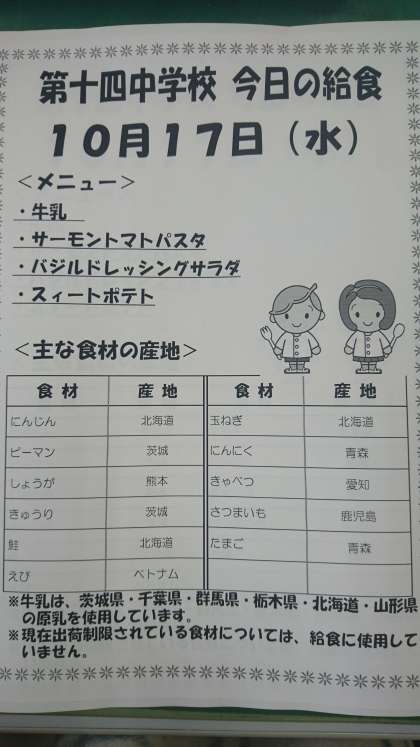 第十四中学校 今日の給食
10月17日（水）
＜メニュー＞
・牛乳
・サーモントマトパスタ
・バジルドレッシングサラダ
・スィートポテト
＜主な食材の産地＞
食材 産地 食材 産地
にんじん 北海道 玉ねぎ 北海道
ピーマン 茨城 にんにく 青森
しょうが 熊本 きゃべつ 愛知
きゅうり 茨城 さつまいも 鹿児島
鮭 北海道 たまご 青森
えび ベトナム
※牛乳は、茨城県・千葉県・群馬県・栃木県・北海道・山形県
の原乳を使用しています。
※現在出荷制限されている食材については、給食に使用して
いません。